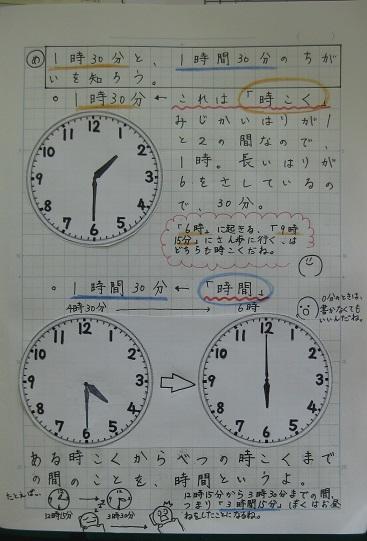 め 1時30分と、1時間30分のちが
いを知ろう。
○ 1時30分 ← これは「時こく」
12 1 2 3 4 5 6 7 8 9 10 11
みじかいはりが1
と2の間なので、
1時。長いはりが
6をさしているの
で、30分。
「6時」に起きる、「9時
15分」にさん歩に行く、は
どちらも時こくだね。
○ 1時間30分 ← 「時間」
4時30分 → 6時
0分のときは、
書かなくても
いいんだね。
12 1 2 3 4 5 6 7 8 9 10 11
12 1 2 3 4 5 6 7 8 9 10 11
ある時こくからべつの時こくまで
の間のことを、時間というよ。
たとえば…
12時15分 → 3時30分
12時15分から3時30分までの間、
つまり「3時間15分」ぼくはお昼
ねをしたことになるね。